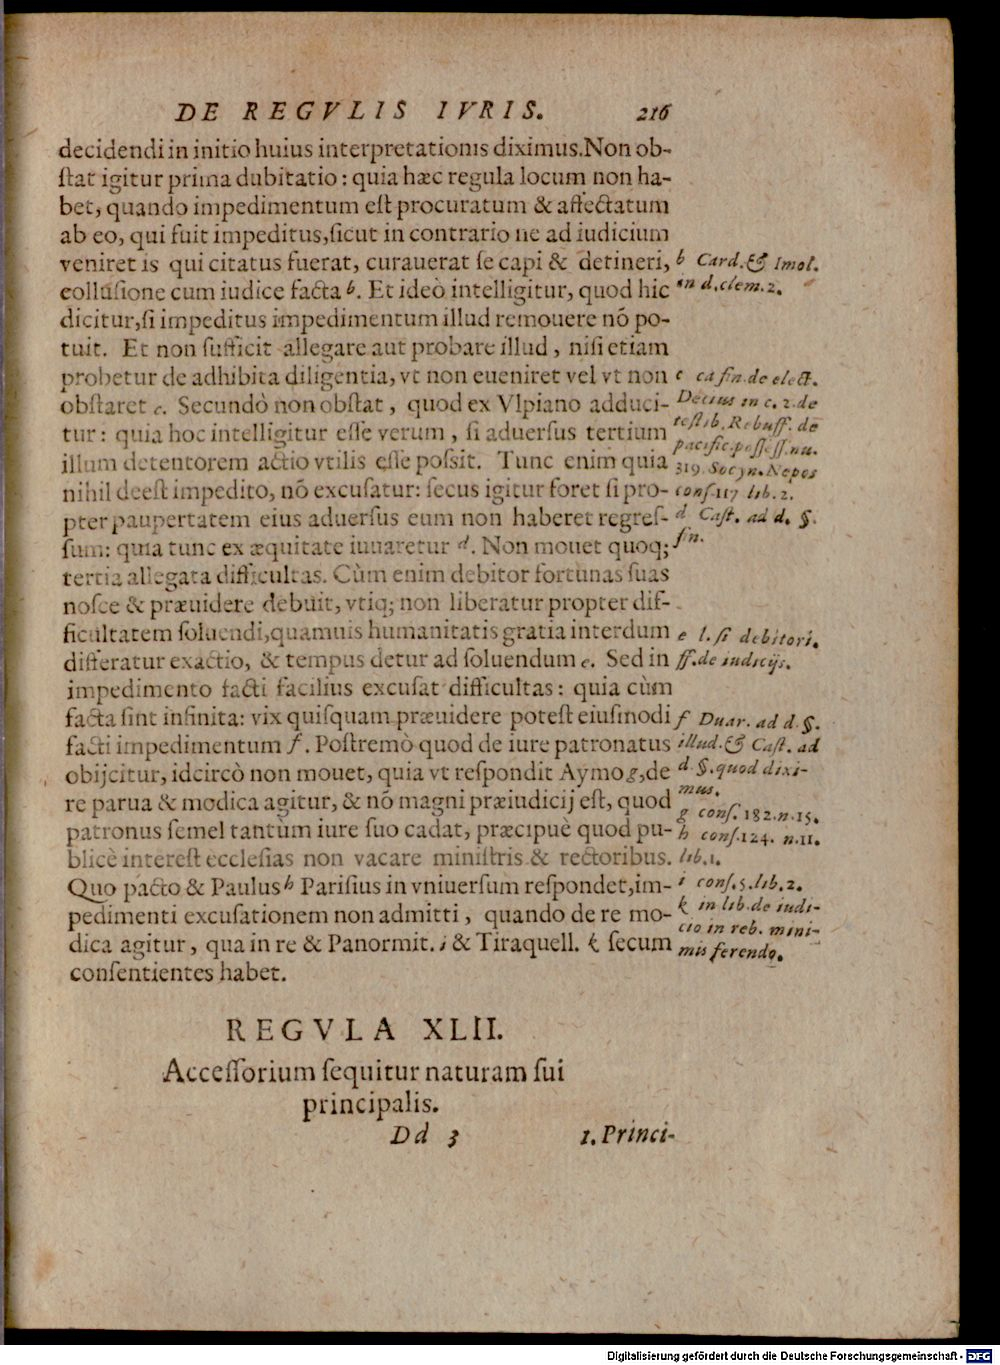 DE REGVLIS IVRIS. 216
decidendi in initio huius interpretationis diximus. Non ob-
ſtat igitur prima dubitatio: quia hæc regula locum non ha-
bet, quando impedimentum eſt procuratum & affectatum
ab eo, qui fuit impeditus, ſicut in contrario ne ad iudicium
veniret is qui citatus fuerat, curauerat ſe capi & detineri,
colluſione cum iudice facta b. Et ideò intelligitur, quod hic
dicitur, ſi impeditus impedimentum illud remouere nõ po-
tuit. Et non ſufficit allegare aut probare illud, niſi etiam
probetur de adhibita diligentia, vt non eueniret vel vt non
obſtaret c. Secundò non obſtat, quod ex Vlpiano adduci-
tur: quia hoc intelligitur eſſe verum, ſi aduerſus tertium
illum detentorem actio vtilis eſſe poſsit. Tunc enim quia
nihil deeſt impedito, nõ excuſatur: ſecus igitur foret ſi pro-
pter paupertatem eius aduerſus eum non haberet regreſ-
ſum: quia tunc ex æquitate iuuaretur d. Non mouet quoq;
tertia allegata difficultas. Cùm enim debitor fortunas ſuas
noſce & præuidere debuit, vtiq; non liberatur propter dif-
ficultatem ſoluendi, quamuis humanitatis gratia interdum
differatur exactio, & tempus detur ad ſoluendum e. Sed in
impedimento facti facilius excuſat difficultas: quia cùm
facta ſint infinita: vix quiſquam præuidere poteſt eiuſmodi
facti impedimentum f. Poſtremò quod de iure patronatus
obijcitur, idcircò non mouet, quia vt reſpondit Aymo g, de
re parua & modica agitur, & nõ magni præiudicij eſt, quod
patronus ſemel tantùm iure ſuo cadat, præcipuè quod pu-
blicè intereſt ecclesias non vacare miniſtris & rectoribus.
Quo pacto & Paulus h Pariſius in vniuerſum reſpondet, im-
pedimenti excuſationem non admitti, quando de re mo-
dica agitur, qua in re & Panormit. i & Tiraquell. k ſecum
conſentientes habet.
b Card. & Imol.
in d. clem. 2.
c ca fin. de elect.
Decius in c. 2. de
teſtib. Rebuff. de
pacific. poſſeſſ. nu.
319. Socyn. Nepos
conſ. 117 lib. 2.
d Caſt. ad d. §.
fin.
e l. ſi debitori.
ff. de iudicijs.
f Duar. ad d. §.
illud. & Caſt. ad
d. §. quod dixi-
mus.
g conſ. 182. n. 15.
h conſ. 124. n. 11.
lib. 1.
i conſ. 5. lib. 2.
k in lib. de iudi-
cio in reb. mini-
mis ferendo.
REGVLA XLII.
Acceſſorium ſequitur naturam ſui
principalis.
Dd 3 1. Princi-
Digitalisierung gefördert durch die Deutsche Forschungsgemeinschaft - DFG